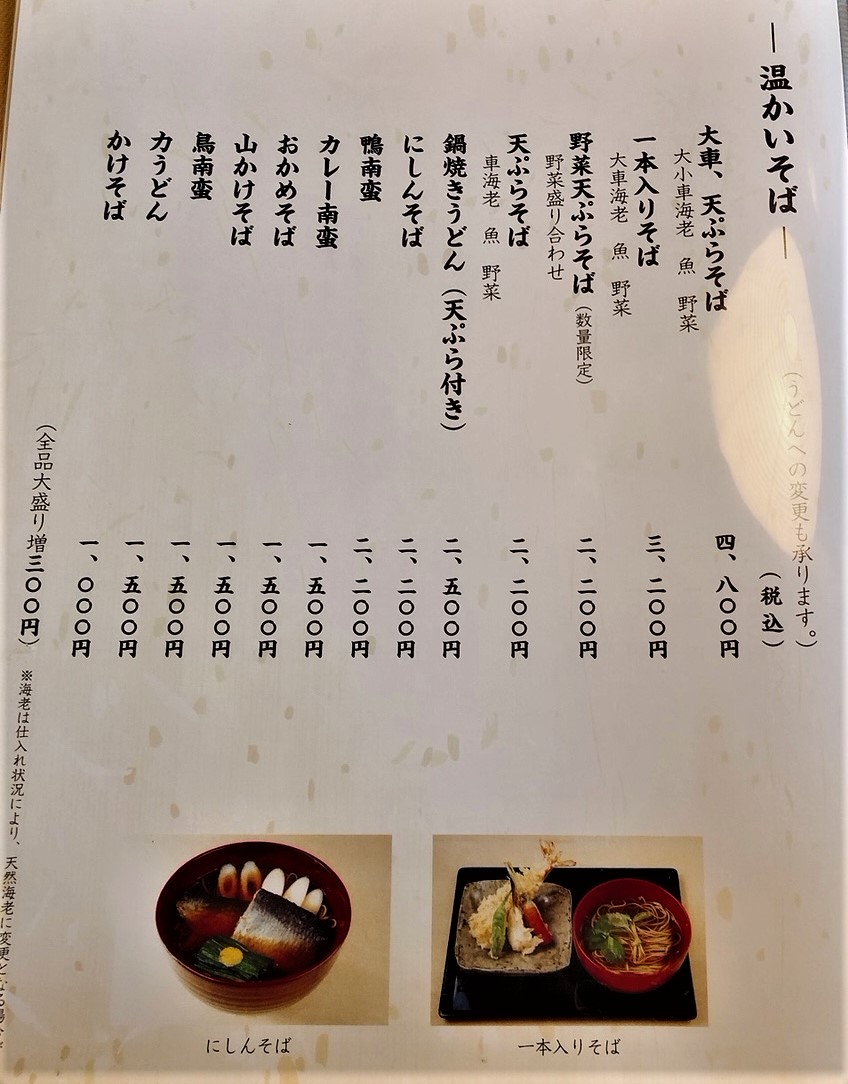 ― 温かいそば ―
(うどんへの変更も承ります。)
(税込)
大車、天ぷらそば 四、八〇〇円
大小車海老 魚 野菜
一本入りそば 三、二〇〇円
大車海老 魚 野菜
野菜天ぷらそば(数量限定) 二、二〇〇円
野菜盛り合わせ
天ぷらそば 二、二〇〇円
車海老 魚 野菜
鍋焼きうどん(天ぷら付き) 二、五〇〇円
にしんそば 二、二〇〇円
鴨南蛮 二、二〇〇円
カレー南蛮 一、五〇〇円
おかめそば 一、五〇〇円
山かけそば 一、五〇〇円
鳥南蛮 一、五〇〇円
力うどん 一、五〇〇円
かけそば 一、〇〇〇円
(全品大盛り増三〇〇円)
※海老は仕入れ状況により、天然海老に変更となる場合
一本入りそば
にしんそば